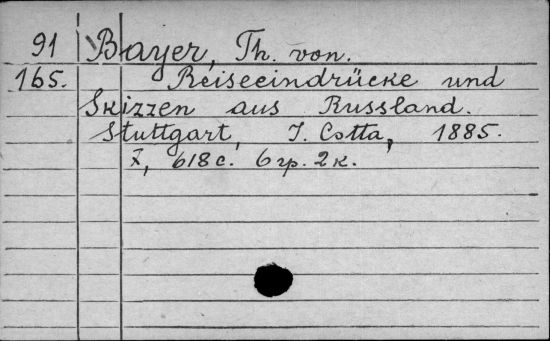 91 Bayer, Th. von.
165. Reiseeindrücke und
Skizzen aus Russland.
Stuttgart, J. Cotta, 1885.
X, 618 с. 6 гр. 2 к.